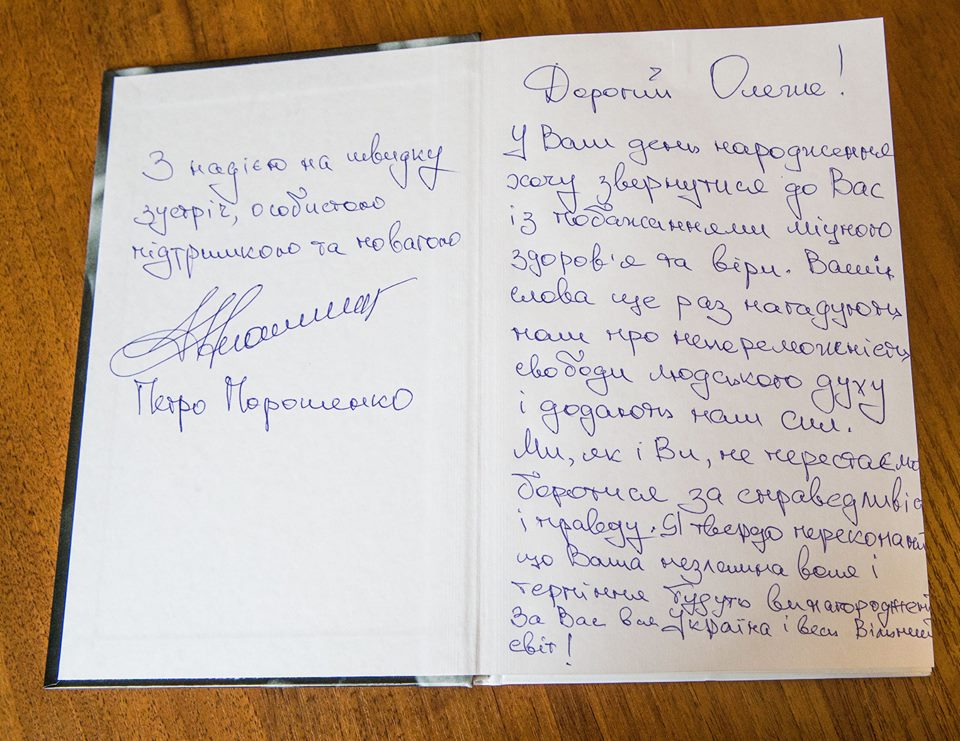 З надією на швидку
зустріч, особистою
підтримкою та повагою
Петро Порошенко
Дорогий Олегже!
У Ваш день народження
хочу звернутися до Вас
із побажаннями міцного
здоров'я та віри. Ваші
слова ще раз нагадують
нам про непереможність
свободи людського духу
і додають нам сил.
Ми, як і Ви, не перестаємо
боротися за справедливіс
і правду. Я твердо переконани
що Ваша незламна воля і
терпіння будуть винагороджені
За Вас вся Україна і весь Вільний
світ!